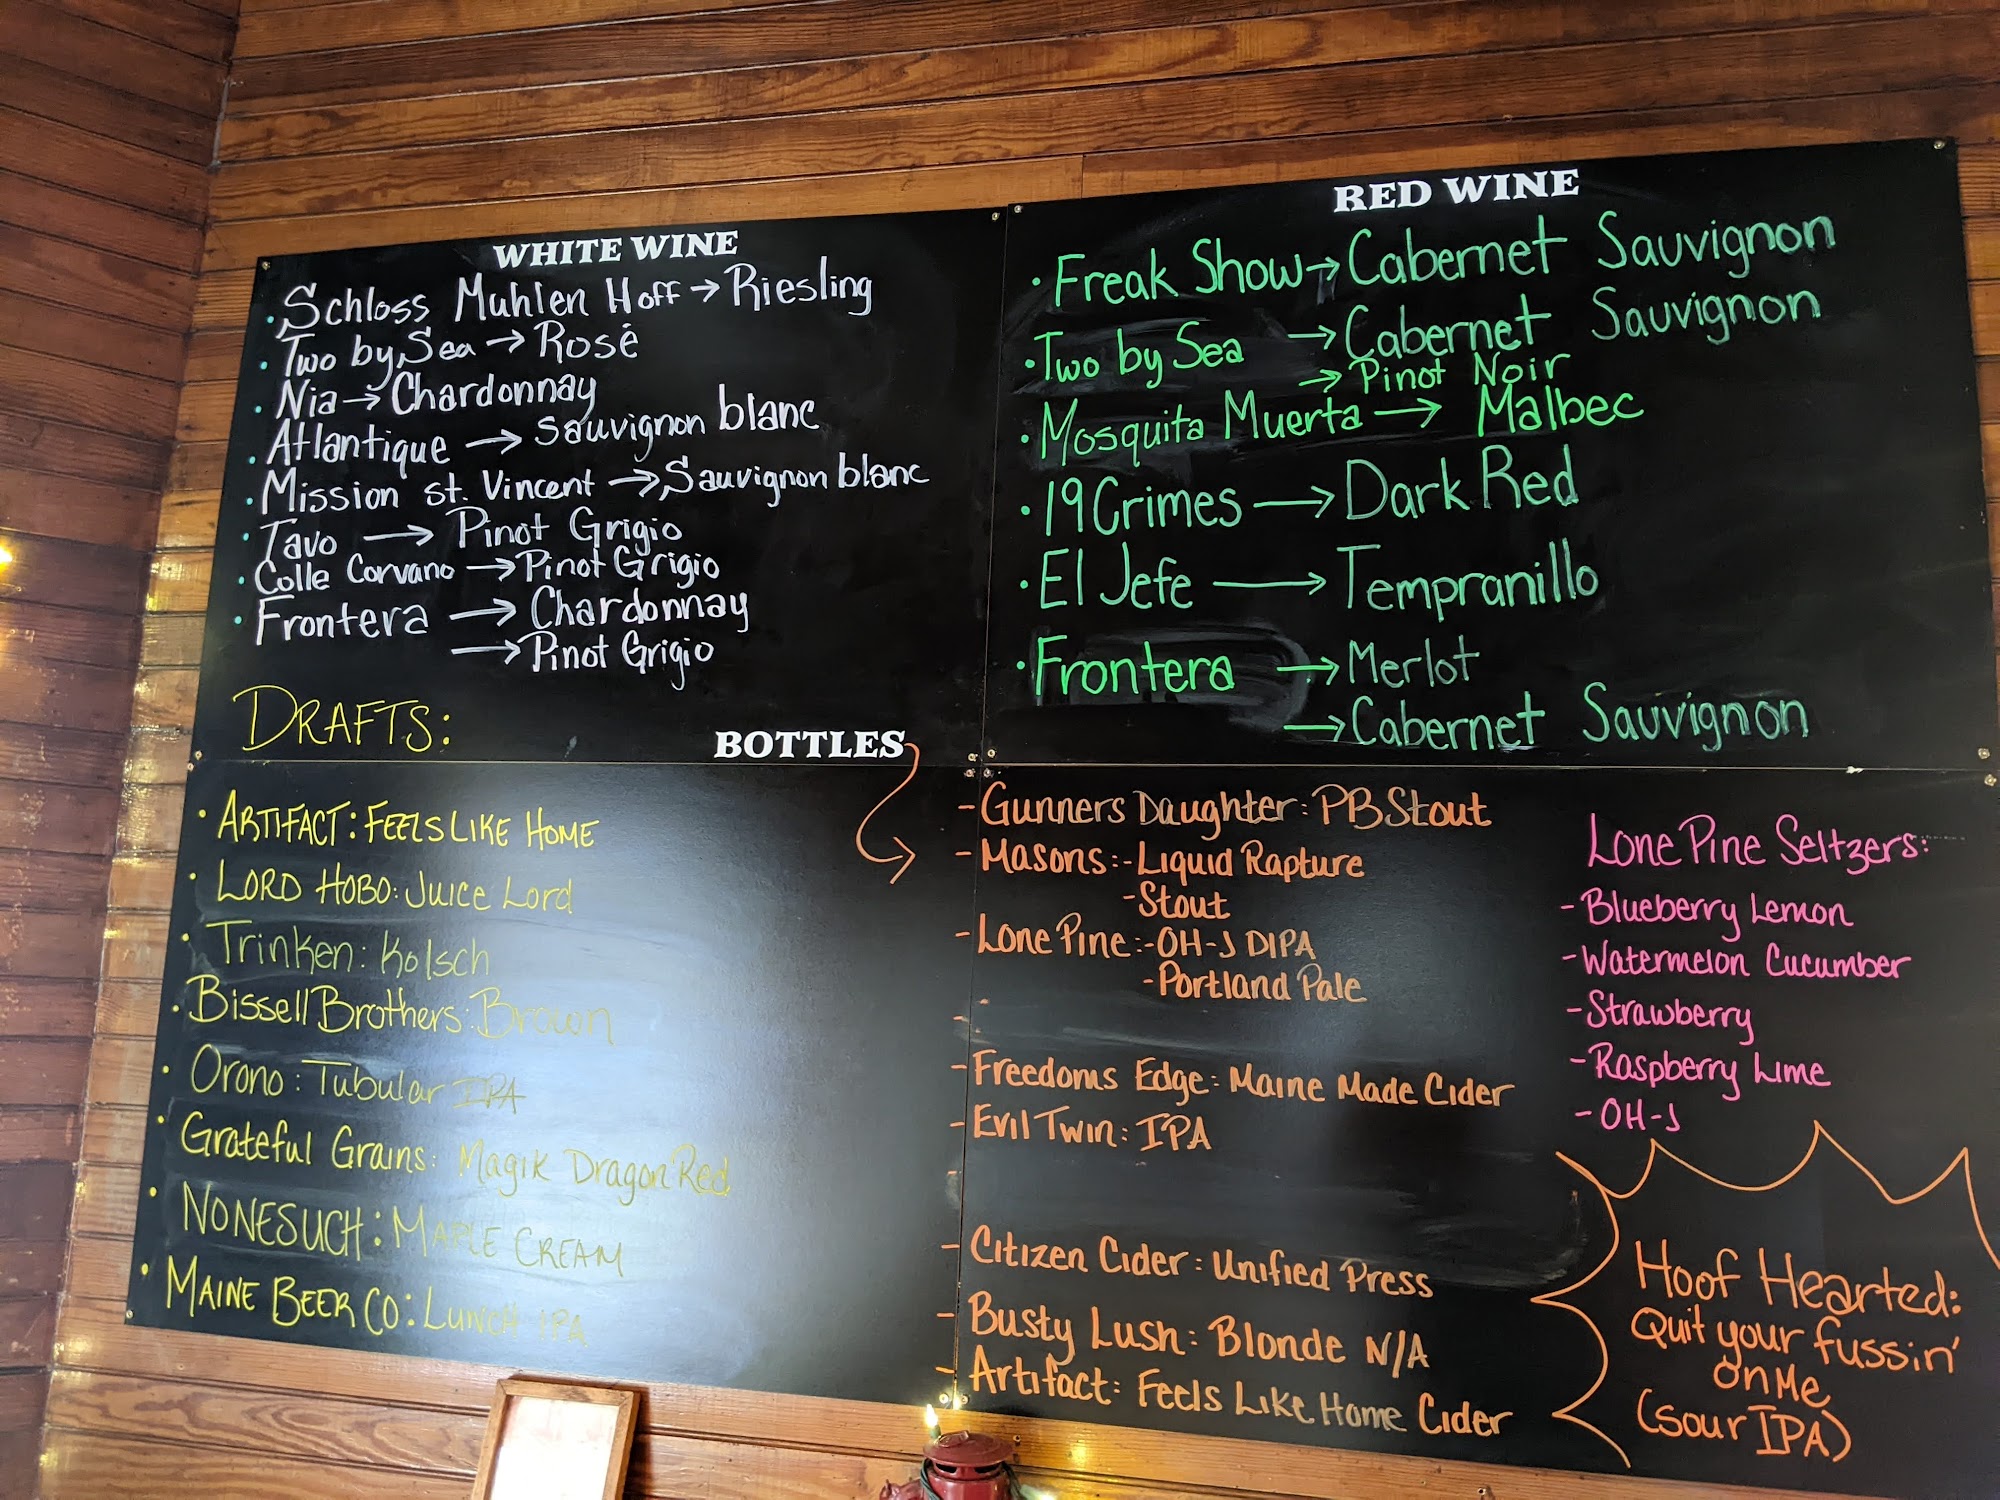 WHITE WINE
· Schloss Muhlen Hoff → Riesling
· Two by Sea → Rosé
· Nia → Chardonnay
· Atlantique → Sauvignon blanc
· Mission St. Vincent → Sauvignon blanc
· Tavo → Pinot Grigio
· Colle Corvano → Pinot Grigio
· Frontera → Chardonnay
→ Pinot Grigio
RED WINE
· Freak Show → Cabernet Sauvignon
· Two by Sea → Cabernet Sauvignon
→ Pinot Noir
· Mosquita Muerta → Malbec
· 19 Crimes → Dark Red
· El Jefe → Tempranillo
· Frontera → Merlot
→ Cabernet Sauvignon
DRAFTS:
· ARTIFACT: FEELS LIKE HOME
· LORD HOBO: Juice Lord
· Trinken: Kolsch
· Bissell Brothers: Brown
· Orono: Tubular IPA
· Grateful Grains: Magik Dragon Red
· NONESUCH: MAPLE CREAM
· MAINE BEER CO: LUNCH IPA
BOTTLES
- Gunners Daughter: PB Stout
- Masons: - Liquid Rapture
- Stout
- Lone Pine: - OH-J DIPA
- Portland Pale
-
- Freedoms Edge: Maine Made Cider
- Evil Twin: IPA
-
- Citizen Cider: Unified Press
- Busty Lush: Blonde N/A
- Artifact: Feels Like Home Cider
Lone Pine Seltzers:
- Blueberry Lemon
- Watermelon Cucumber
- Strawberry
- Raspberry Lime
- OH-J
Hoof Hearted:
Quit your fussin'
On Me
(Sour IPA)